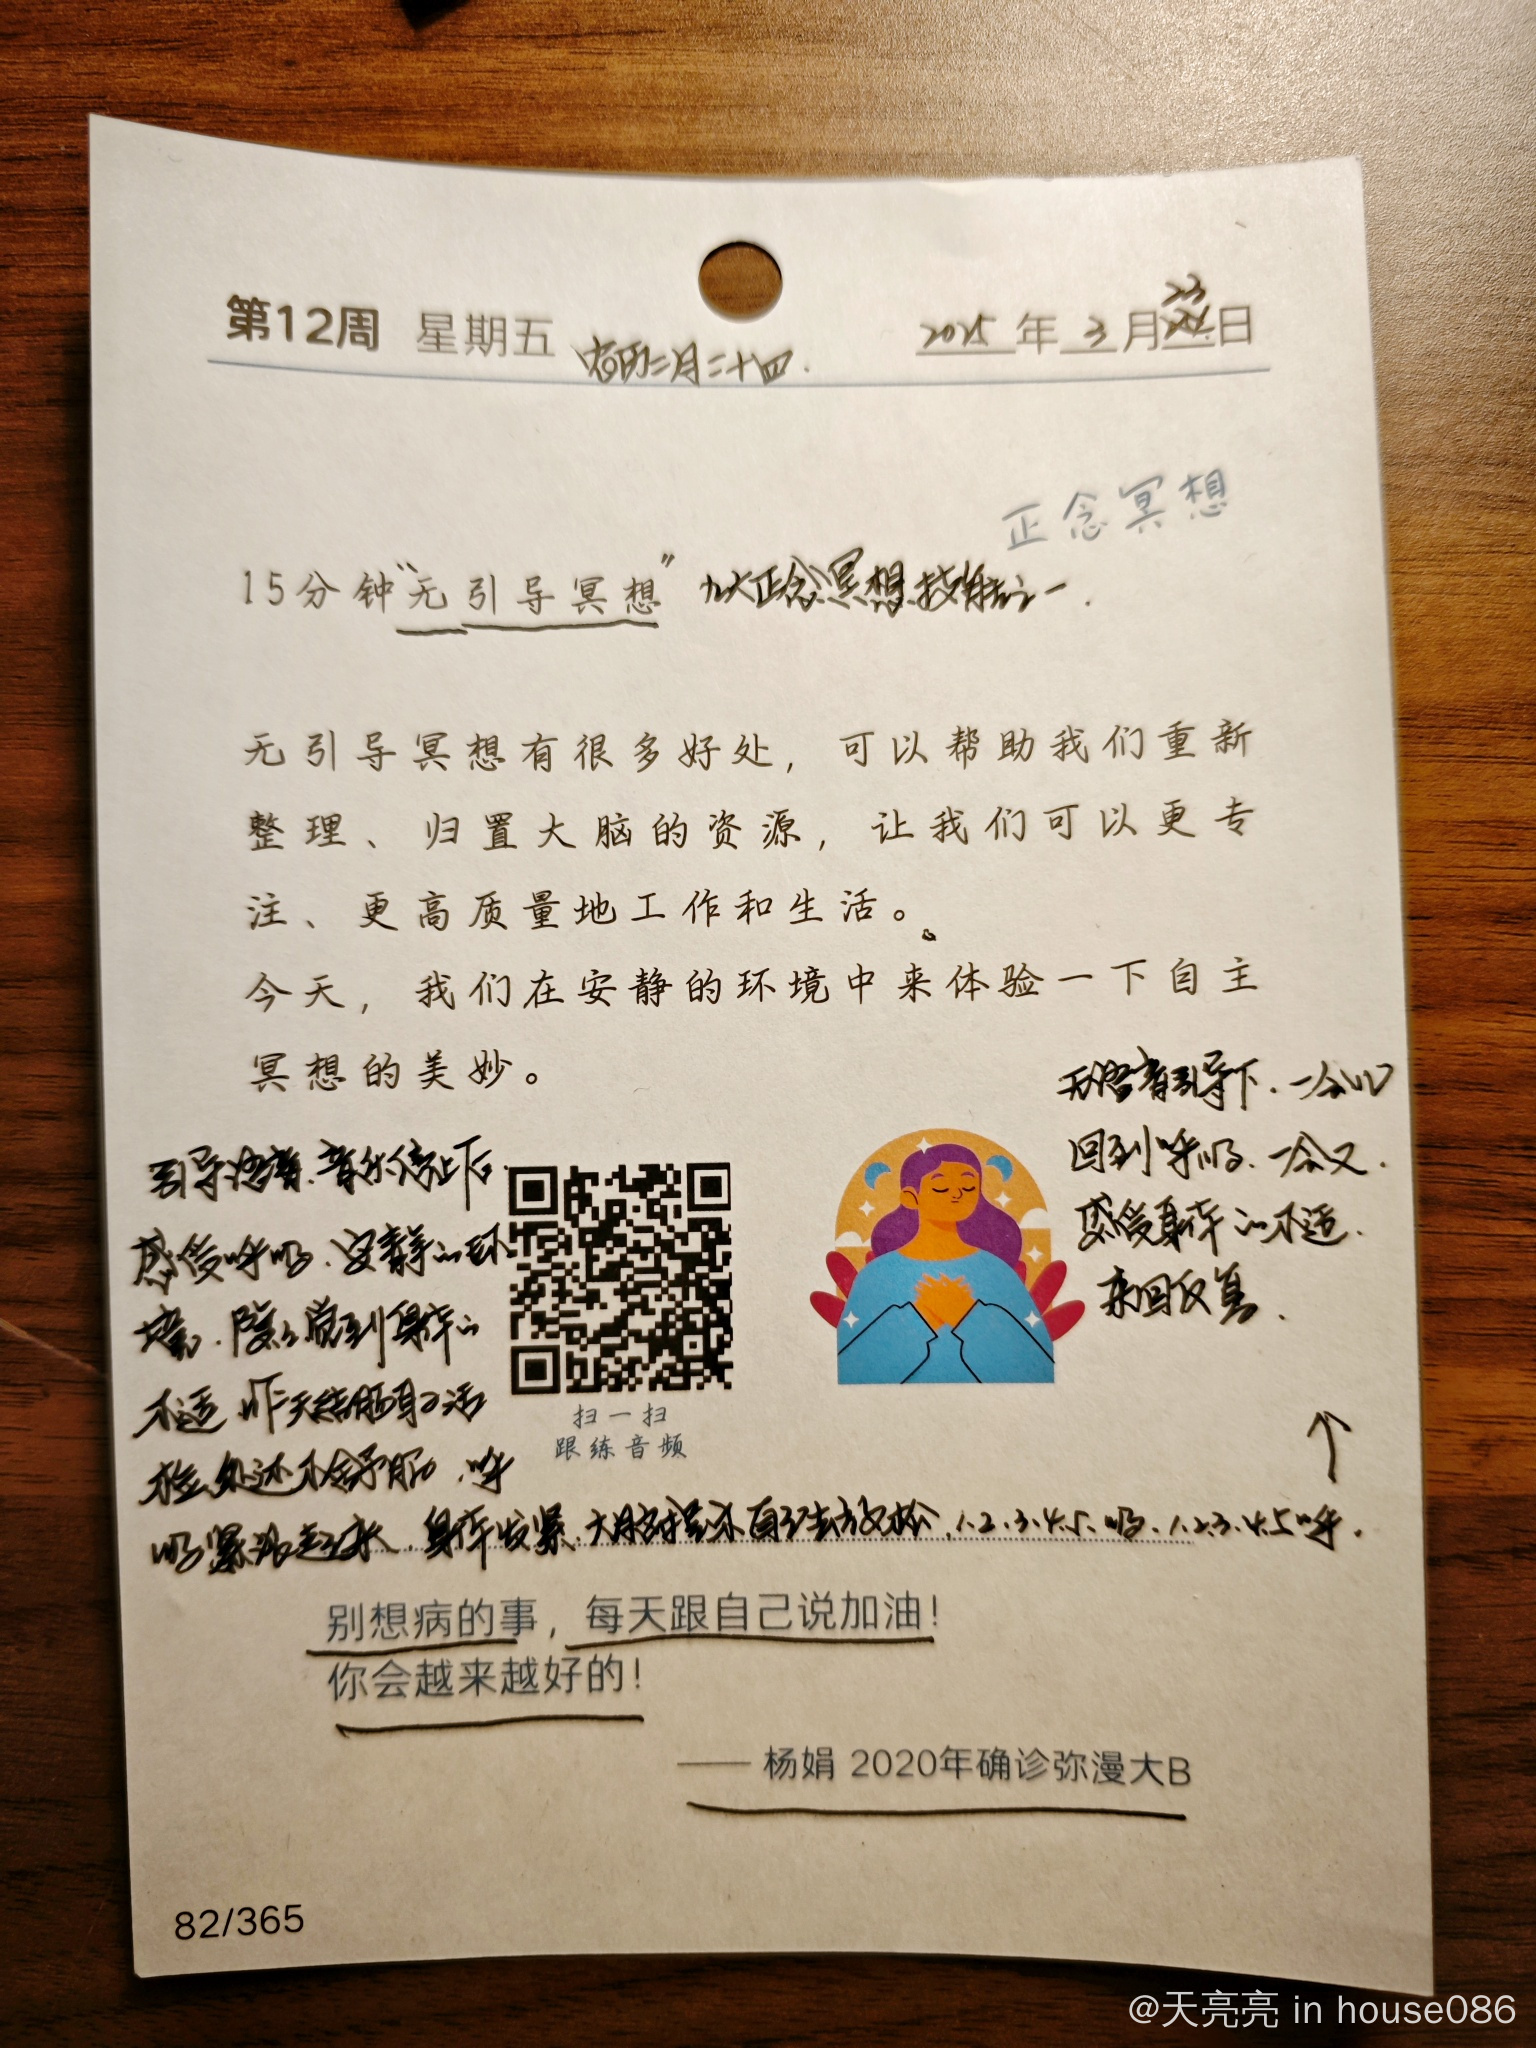 第12周 星期五 农历二月二十四.
2025年3月23日
正念冥想
15分钟“无引导冥想” 九大正念冥想技能之一.
无引导冥想有很多好处，可以帮助我们重新
整理、归置大脑的资源，让我们可以更专
注、更高质量地工作和生活。
今天，我们在安静的环境中来体验一下自主
冥想的美妙。
引导语音、音乐停止后.
感受呼吸.安静的环
境.隐隐觉到身体的
不适 昨天结肠息肉活
检处还不舒服.呼
吸紧张起来.身体发紧.大脑提示自己去放松.1.2.3.4.5.吸.1.2.3.4.5呼.
无语音引导下.一会儿
回到呼吸.一会又.
感受身体的不适.
来回反复.
扫一扫
跟练音频
别想病的事，每天跟自己说加油！
你会越来越好的！
—— 杨娟 2020年确诊弥漫大B
82/365
@天亮亮 in house086